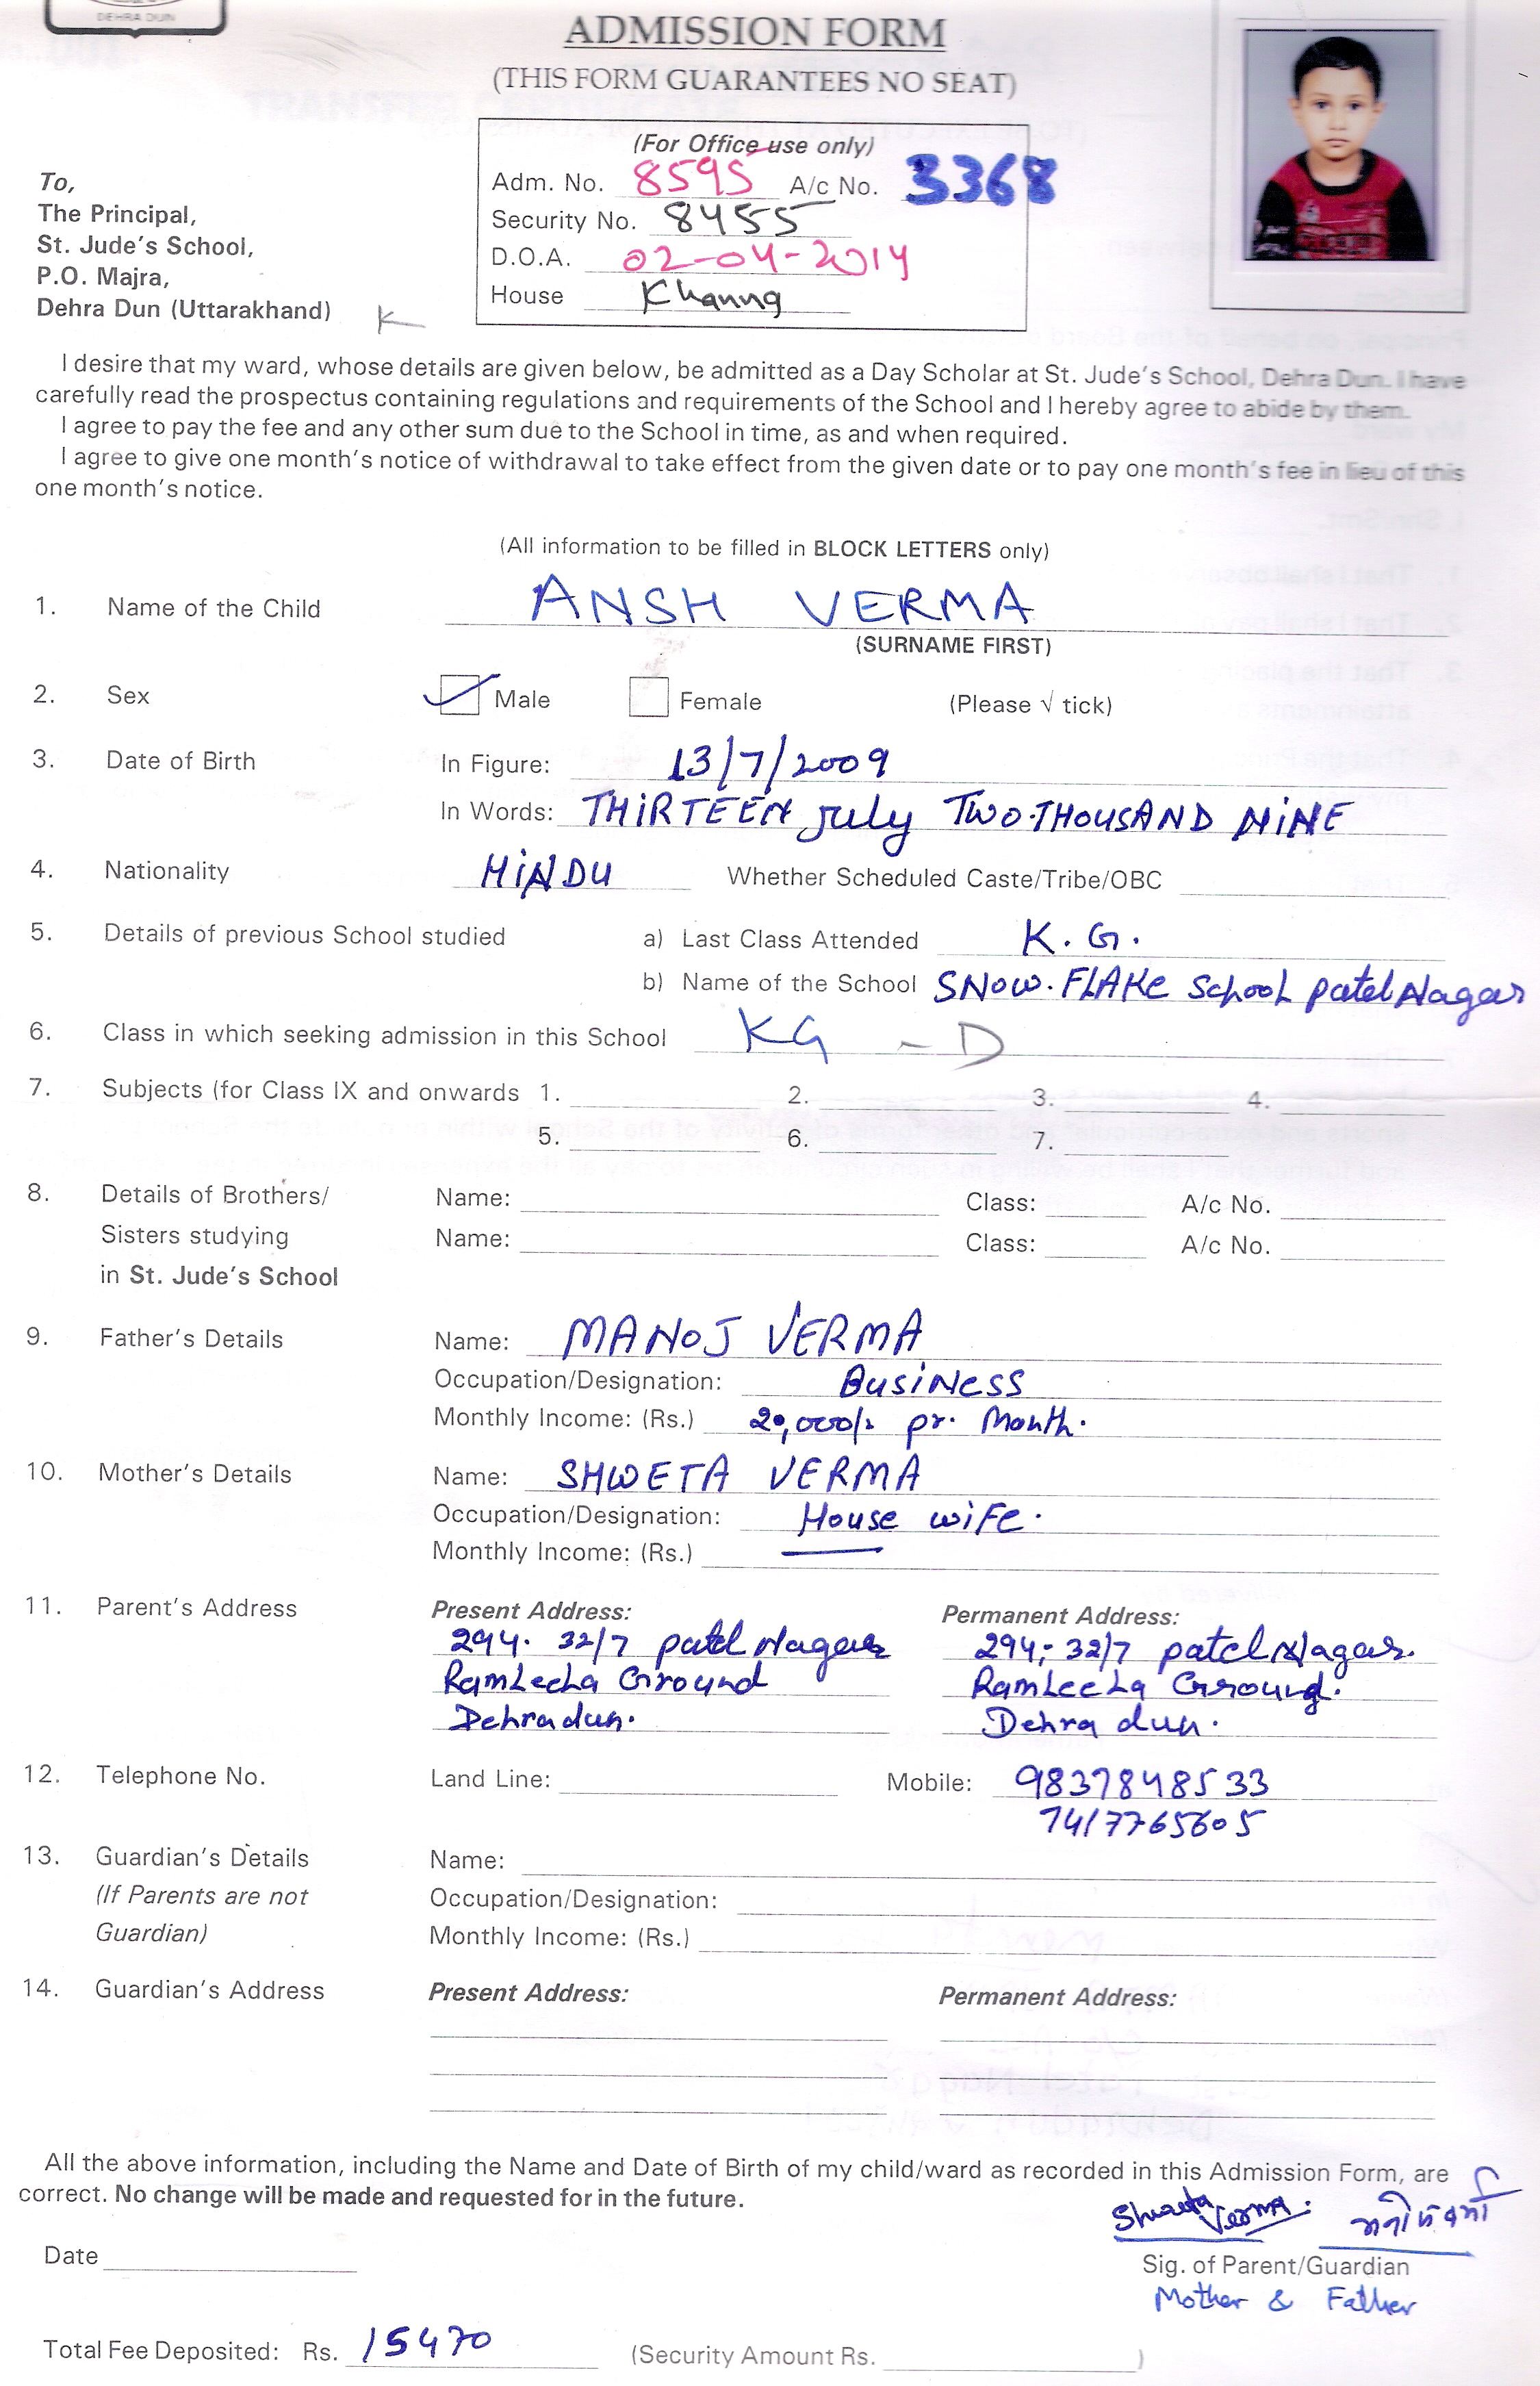 DEHRA DUN
ADMISSION FORM
(THIS FORM GUARANTEES NO SEAT)
(For Office use only)
Adm. No. 8595 A/c No. 3368
Security No. 8455
D.O.A. 02-04-2014
House Khanna
To,
The Principal,
St. Jude's School,
P.O. Majra,
Dehra Dun (Uttarakhand) K
I desire that my ward, whose details are given below, be admitted as a Day Scholar at St. Jude's School, Dehra Dun. I have
carefully read the prospectus containing regulations and requirements of the School and I hereby agree to abide by them.
I agree to pay the fee and any other sum due to the School in time, as and when required.
I agree to give one month's notice of withdrawal to take effect from the given date or to pay one month's fee in lieu of this
one month's notice.
(All information to be filled in BLOCK LETTERS only)
1. Name of the Child ANSH VERMA
(SURNAME FIRST)
2. Sex Male Female (Please √ tick)
3. Date of Birth In Figure: 13/7/2009
In Words: THIRTEEN july TWO.THOUSAND NINE
4. Nationality HINDU Whether Scheduled Caste/Tribe/OBC
5. Details of previous School studied a) Last Class Attended K.G.
b) Name of the School SNOW.FLAKE School patel Nagar
6. Class in which seeking admission in this School KG - D
7. Subjects (for Class IX and onwards 1. 2. 3. 4.
5. 6. 7.
8. Details of Brothers/ Name: Class: A/c No.
Sisters studying Name: Class: A/c No.
in St. Jude's School
9. Father's Details Name: MANOJ VERMA
Occupation/Designation: Business
Monthly Income: (Rs.) 20,000/. pr. Month.
10. Mother's Details Name: SHWETA VERMA
Occupation/Designation: House wife.
Monthly Income: (Rs.)
11. Parent's Address Present Address: Permanent Address:
294. 32/7 patel Nagar 294; 32/7 patel Nagar.
RamLeeLa Ground RamLeeLa Ground.
Dehradun. Dehra dun.
12. Telephone No. Land Line: Mobile: 9837848533
7417765605
13. Guardian's Details Name:
(If Parents are not Occupation/Designation:
Guardian) Monthly Income: (Rs.)
14. Guardian's Address Present Address: Permanent Address:
All the above information, including the Name and Date of Birth of my child/ward as recorded in this Admission Form, are
correct. No change will be made and requested for in the future.
Shweta Verma.
Date Sig. of Parent/Guardian
Mother & Father
Total Fee Deposited: Rs. 15470 (Security Amount Rs. )